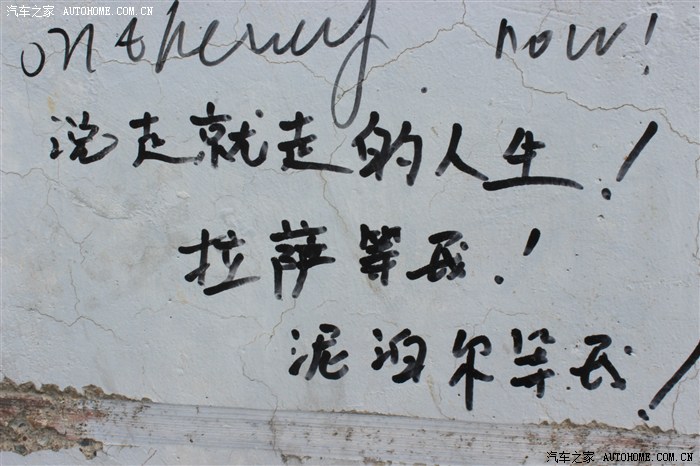 汽车之家 AUTOHOME.COM.CN
on the way now!
说走就走的人生!
拉萨等我!
泥泊尔等我!
汽车之家 AUTOHOME.COM.CN